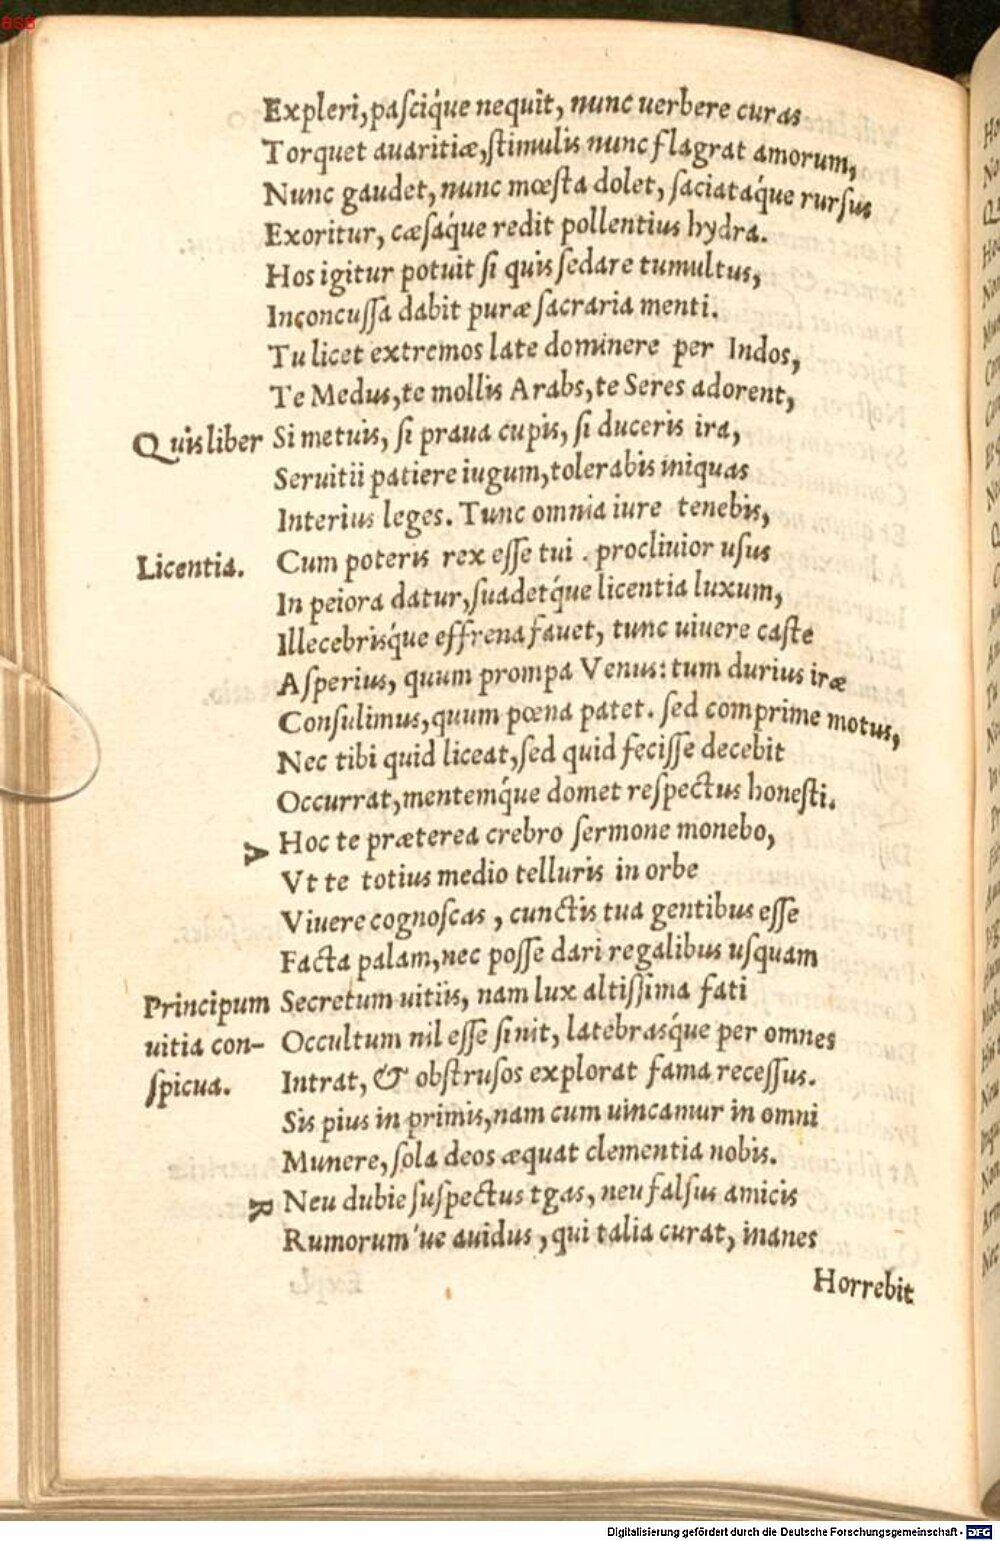 835
Expleri, pasciq́ue nequit, nunc uerbere curas
Torquet auaritiæ, stimulis nunc flagrat amorum,
Nunc gaudet, nunc mœsta dolet, saciataq́ue rursus
Exoritur, cæsaq́ue redit pollentius hydra.
Hos igitur potuit si quis sedare tumultus,
Inconcussa dabit puræ sacraria menti.
Tu licet extremos late dominere per Indos,
Te Medus, te mollis Arabs, te Seres adorent,
Quis liber Si metuis, si praua cupis, si duceris ira,
Seruitii patiere iugum, tolerabis iniquas
Interius leges. Tunc omnia iure tenebis,
Licentia. Cum poteris rex esse tui . procliuior usus
In peiora datur, suadetq́ue licentia luxum,
Illecebrisq́ue effrena fauet, tunc uiuere caste
Asperius, quum prompa Venus: tum durius iræ
Consulimus, quum pœna patet. sed comprime motus,
Nec tibi quid liceat, sed quid fecisse decebit
Occurrat, mentemq́ue domet respectus honesti.
A Hoc te præterea crebro sermone monebo,
Vt te totius medio telluris in orbe
Viuere cognoscas, cunctis tua gentibus esse
Facta palam, nec posse dari regalibus usquam
Principum Secretum uitiis, nam lux altissima fati
uitia con- Occultum nil esse sinit, latebrasq́ue per omnes
spicua. Intrat, & obstrusos explorat fama recessus.
Sis pius in primis, nam cum uincamur in omni
Munere, sola deos æquat clementia nobis.
R Neu dubie suspectus tgas, neu falsus amicis
Rumorum'ue auidus, qui talia curat, inanes
Horrebit
Digitalisierung gefördert durch die Deutsche Forschungsgemeinschaft - DFG